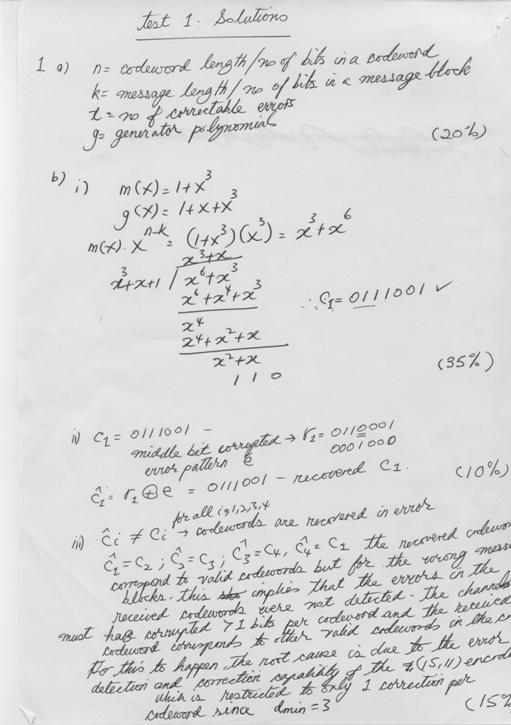 test 1. Solutions
1 a) n = codeword length/no of bits in a codeword
k = message length/no of bits in a message block
t = no of correctable errors
g = generator polynomial
(20%)
b) i) m(x) = 1+x³
g(x) = 1+x+x³
m(x).x^(n-k) = (1+x³)(x³) = x³+x⁶
x³+x
x³+x+1 x⁶+x³
x⁶+x⁴+x³
∴ C₁ = 0111001 ✓
x⁴
x⁴+x²+x
x²+x
1 1 0
(35%)
ii) C₁ = 0111001 –
middle bit corrupted → r₁ = 0110001
error pattern e 0001000
Ĉ₁ = r₁ ⊕ e = 0111001 – recovered C₁.
(10%)
for all i=1,2,3,4
iii) Ĉi ≠ Ci → codewords are recovered in error
Ĉ₁ = C₂ ; = C₃ ; Ĉ₃ = C₄, Ĉ₄ = C₁ the recovered codewor
correspond to valid codewords but for the wrong messa
blocks. this implies that the errors in the
received codewords were not detected. the channels
must have corrupted >1 bits per codeword and the received
codeword corresponds to other valid codewords in the co
For this to happen, the root cause is due to the error
detection and correction capability of the (15,11) encod
which is restricted to only 1 correction per
codeword since dmin = 3
(15%